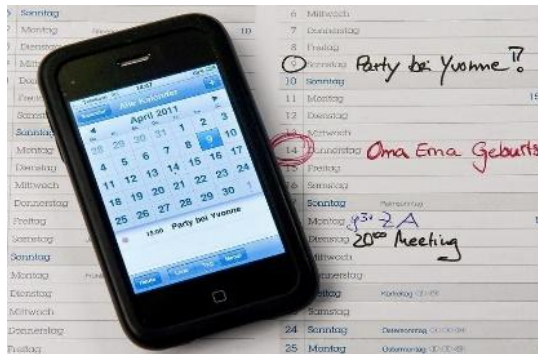 Sonntag
Montag 10
Dienstag
Sonntag
Montag
Dienstag
Mittwoch
Donnerstag
Freitag
Samstag
Sonntag
Montag
Dienstag
Mittwoch
Donnerstag
Freitag
14:47
Alle Kalender
+
April 2011
28 29 30 31 1 2 3
4 5 6 7 8 9 10
11 12 13 14 15 16 17
18 19 20 21 22 23 24
25 26 27 28 29 30 1
15:00 Party bei Yvonne
Heute Liste Tag Monat
6 Mittwoch
7 Donnerstag
8 Freitag
9 Samstag Party bei Yvonne!
10 Sonntag
11 Montag
12 Dienstag
13 Mittwoch
14 Donnerstag Oma Erna Geburts
15 Freitag
16 Samstag
Sonntag Palmsonntag
Montag ZA
Dienstag 20⁰⁰ Meeting
Mittwoch
Donnerstag
Freitag Karfreitag
Samstag
24 Sonntag Ostersonntag
25 Montag Ostermontag